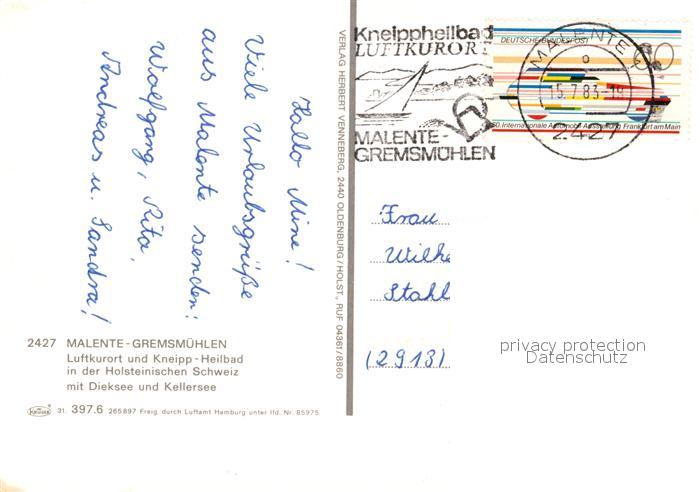 Hallo Mine!
Viele Urlaubsgrüße
aus Malente senden:
Wolfgang, Rita,
Andreas u. Sandra!
2427 MALENTE-GREMSMÜHLEN
Luftkurort und Kneipp-Heilbad
in der Holsteinischen Schweiz
mit Dieksee und Kellersee
31. 397.6 265897 Freig. durch Luftamt Hamburg unter lfd. Nr. 85975
VERLAG HERBERT VENNEBERG, 2440 OLDENBURG/HOLST., RUF 04361/8860
Kneippheilbad
LUFTKURORT
MALENTE-
GREMSMÜHLEN
DEUTSCHE BUNDESPOST
Internationale Automobil-Ausstellung Frankfurt am Main
MALENTE
15.7.83-19
2427
Frau
Wilhe
Stahl
(2913)
privacy protection
Datenschutz